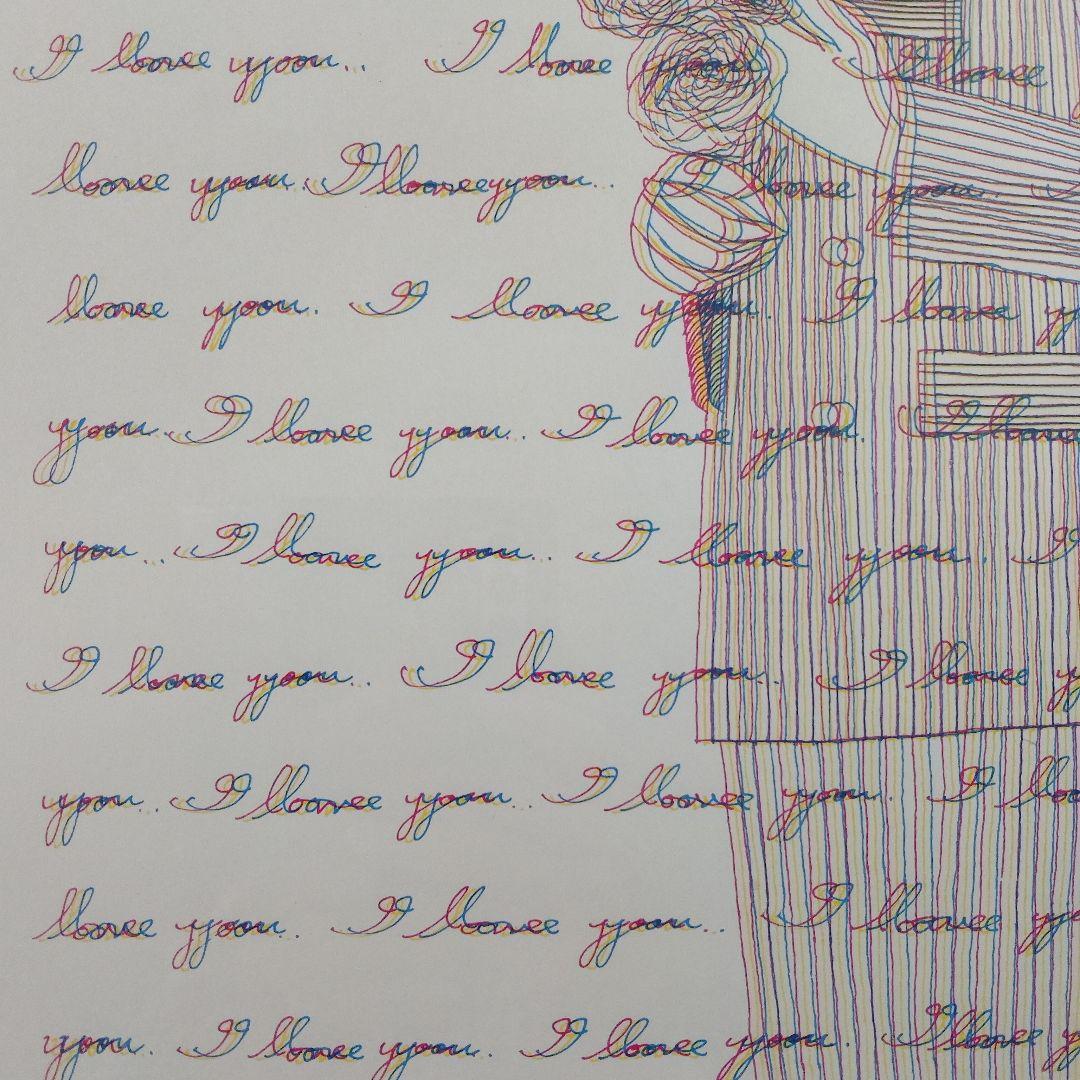 I love you. I love you. I love
love you. I love you. I love you.
love you. I love you. I love y
you. I love you. I love you. I love
you. I love you. I love you. I
I love you. I love you. I love y
you. I love you. I love you. I lo
love you. I love you. I love yo
you. I love you. I love you. I love y